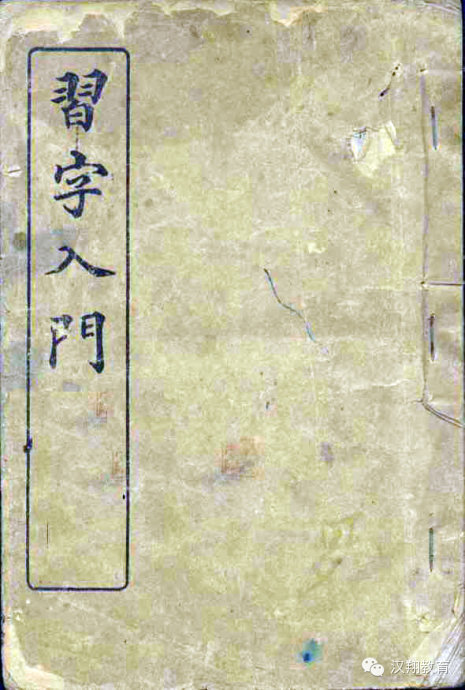 習字入門
汉翔教育